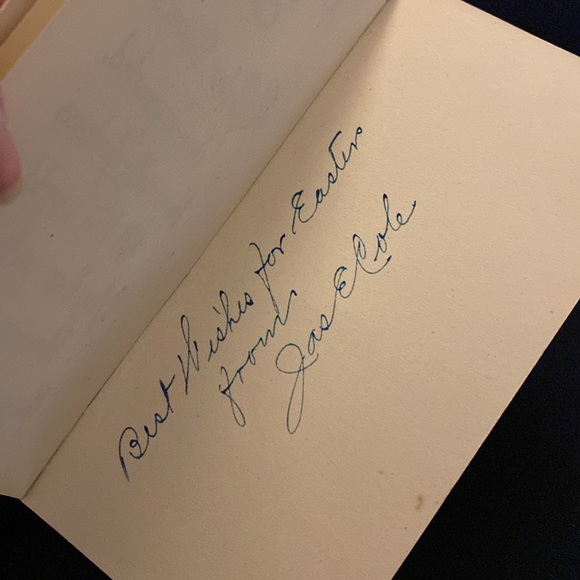 Best Wishes for Easter
from
Jas E Cole